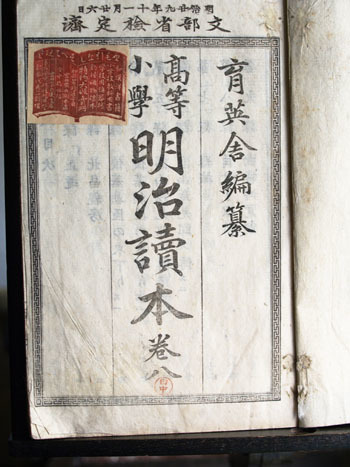 明治廿九年十一月廿六日
文部省檢定濟
育英舎編纂
高等
小學
明治讀本 卷八